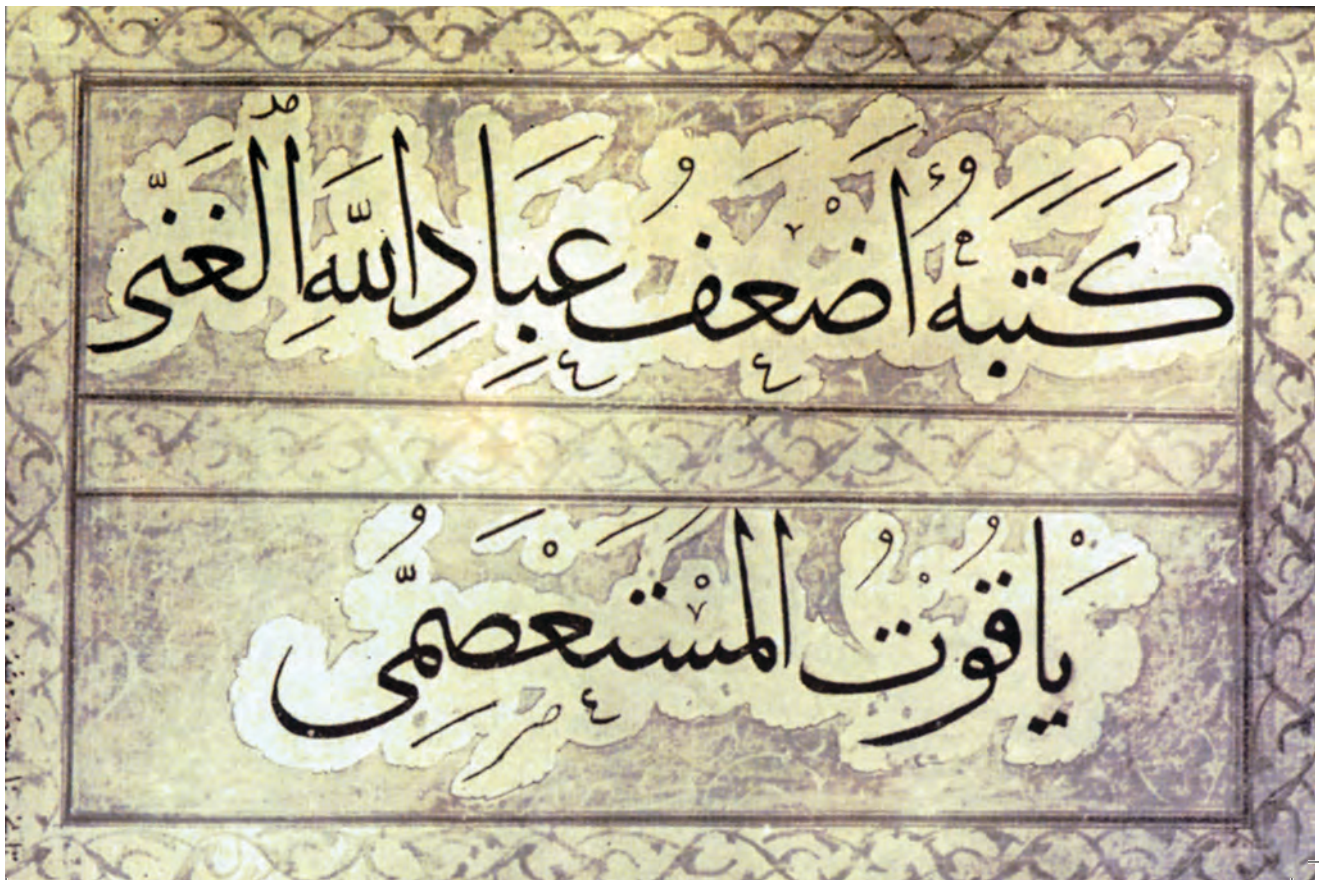 كَتَبَهُ أَضْعَفُ عِبَادِ اللهِ الْغَنِيِّ
يَاقُوتُ الْمُسْتَعْصِمِيُّ